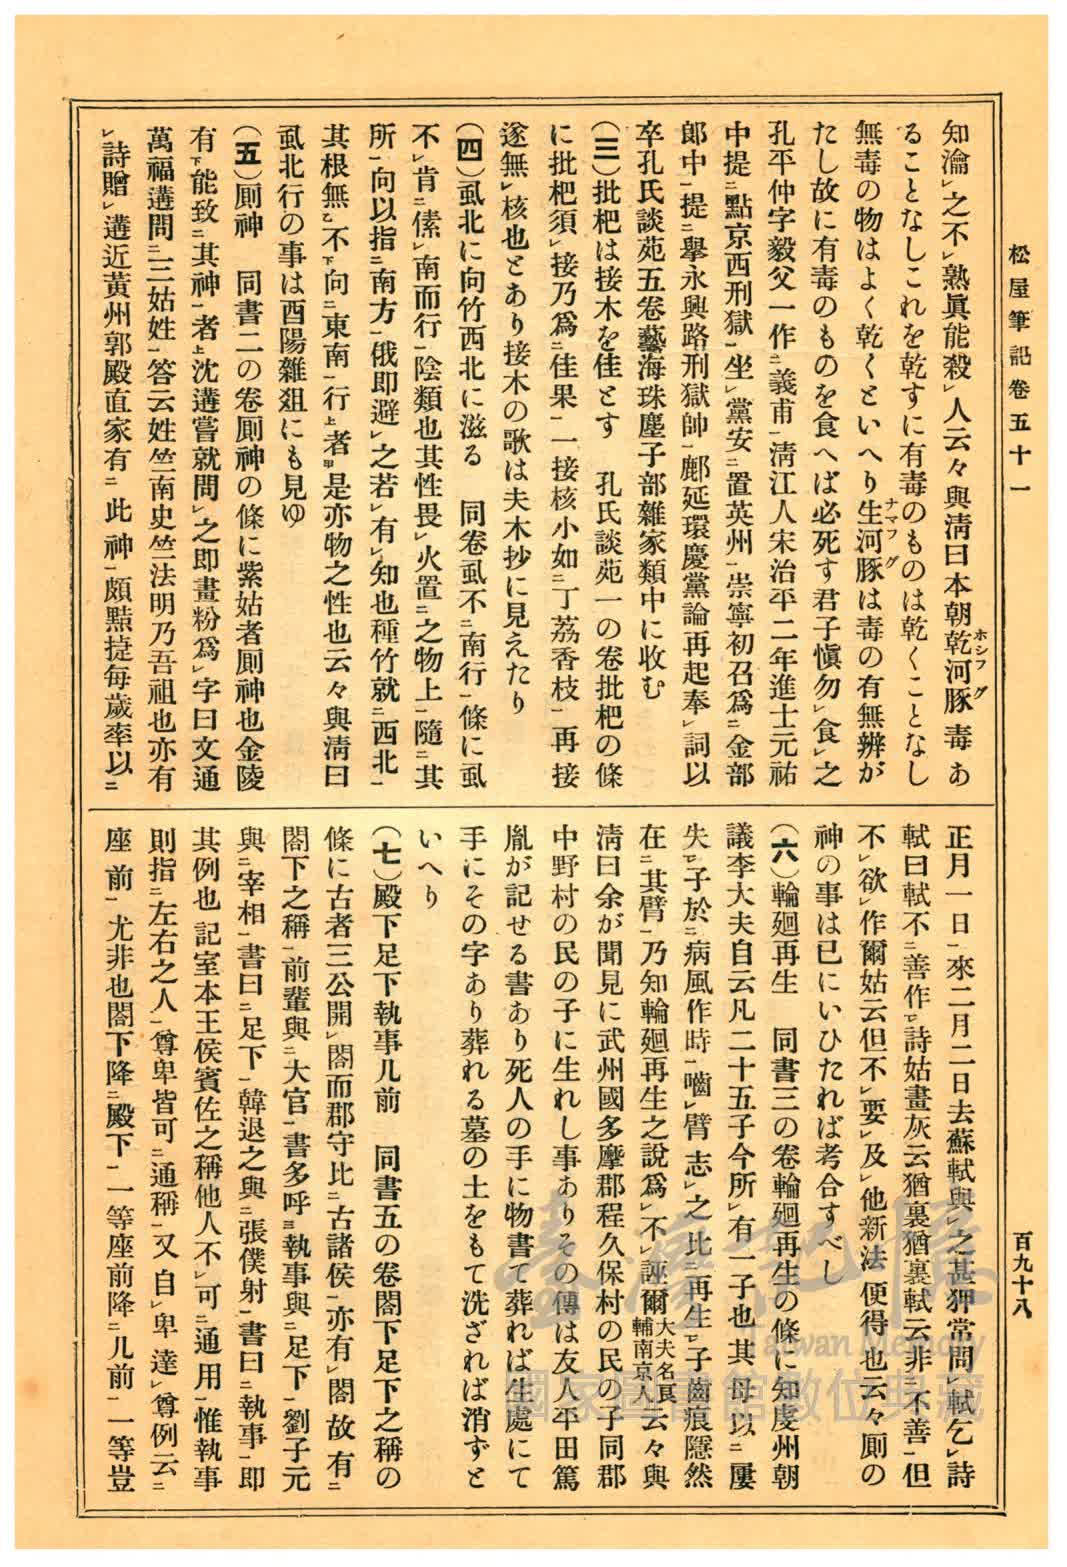 松屋筆記卷五十一
百九十八
知淪㆑之不㆑熟眞能殺㆑人云々與淸曰本朝乾河豚ホシフグ毒あ
ることなしこれを乾すに有毒のものは乾くことなし
無毒の物はよく乾くといへり生河豚ナマフグは毒の有無辨が
たし故に有毒のものを食へば必死す君子愼勿㆑食㆑之
孔平仲字毅父一作㆓義甫㆒淸江人宋治平二年進士元祐
中提㆓點京西刑獄㆒坐㆑黨安㆓置英州㆒崇寧初召爲㆓金部
郞中㆒提㆓擧永興路刑獄帥㆒鄜延環慶黨論再起奉㆑詞以
卒孔氏談苑五卷藝海珠塵子部雜家類中に收む
(三)批杷は接木を佳とす　孔氏談苑一の卷批杷の條
に批杷須㆑接乃爲㆓佳果㆒一接核小如㆓丁荔香枝㆒再接
遂無㆑核也とあり接木の歌は夫木抄に見えたり
(四)虱北に向竹西北に滋る　同卷虱不㆓南行㆒條に虱
不㆑肯㆓傃㆑南而行㆒陰類也其性畏㆑火置㆓之物上㆒隨㆓其
所㆒向以指㆓南方㆒俄即避㆑之若㆑有㆑知也種竹就㆓西北㆒
其根無㆚不㆘向㆓東南㆒行㆖者㆙是亦物之性也云々與淸曰
虱北行の事は酉陽雜爼にも見ゆ
(五)厠神　同書二の卷厠神の條に紫姑者厠神也金陵
有㆘能致㆓其神㆒者㆖沈遘嘗就問㆑之即畫粉爲㆑字曰文通
萬福遘問㆓三姑姓㆒答云姓竺南史竺法明乃吾祖也亦有
㆑詩贈㆑遘近黃州郭殿直家有㆓此神㆒頗黠捷每歲率以㆓
正月一日㆒來二月二日去蘇軾與㆑之甚狎常問㆑軾乞㆑詩
軾曰軾不㆓善作㆒㆑詩姑畫灰云猶裏猶裏軾云非㆓不善㆒但
不㆑欲㆑作爾姑云但不㆑要㆑及㆑他新法㆒便得也云々厠の
神の事は已にいひたれば考合すべし
(六)輪廻再生　同書三の卷輪廻再生の條に知虔州朝
議李大夫自云凡二十五子今所㆑有一子也其母以㆓屢
失㆒㆑子於㆓病風作時㆒嚙㆑臂志㆑之比㆓再生㆒㆑子齒痕隱然
在㆓其臂㆒乃知輪廻再生之說爲㆑不㆑誣爾大夫名㝠輔南京人云々與
淸曰余が聞見に武州國多摩郡程久保村の民の子同郡
中野村の民の子に生れし事ありその傳は友人平田篤
胤が記せる書あり死人の手に物書て葬れば生處にて
手にその字あり葬れる墓の土をもて洗ざれば消ずと
いへり
(七)殿下足下執事几前　同書五の卷閤下足下之稱の
條に古者三公開㆑閤而郡守比㆓古諸侯㆒亦有㆑閤故有㆓
閤下之稱㆒前輩與㆓大官㆒書多呼㆔執事與㆓足下㆒劉子元
與㆓宰相㆒書曰㆓足下㆒韓退之與㆓張僕射㆒書曰㆓執事㆒即
其例也記室本王侯賓佐之稱他人不㆑可㆓通用㆒惟執事
則指㆓左右之人㆒尊卑皆可㆓通稱㆒又自㆑卑達㆑尊例云㆓
座前㆒尤非也閤下降㆓殿下㆒一等座前降㆓几前㆒一等豈